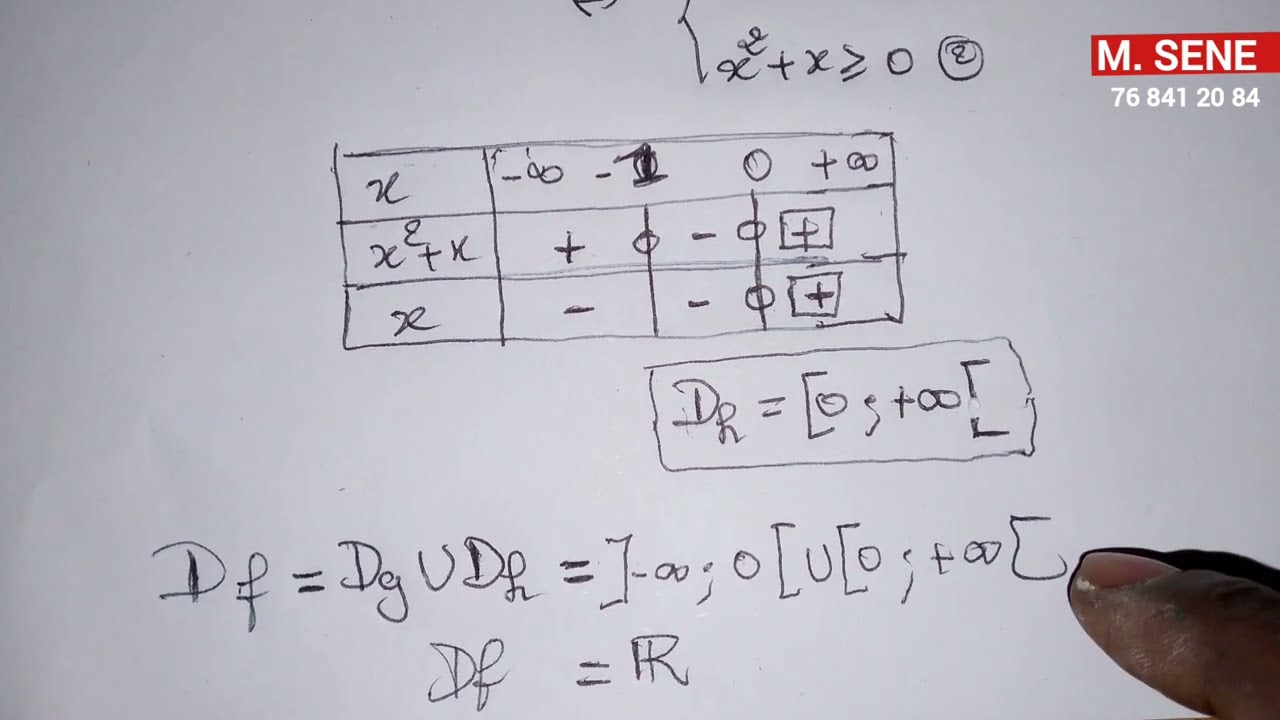 x² + x ≥ 0 ②
M. SENE
76 841 20 84
x -∞ -1 0 +∞
x² + x + 0 - 0 +
x - - 0 +
Dh = [0 ; +∞[
Df = Dg ∪ Dh = ]-∞ ; 0[ ∪ [0 ; +∞[
Df = ℝ